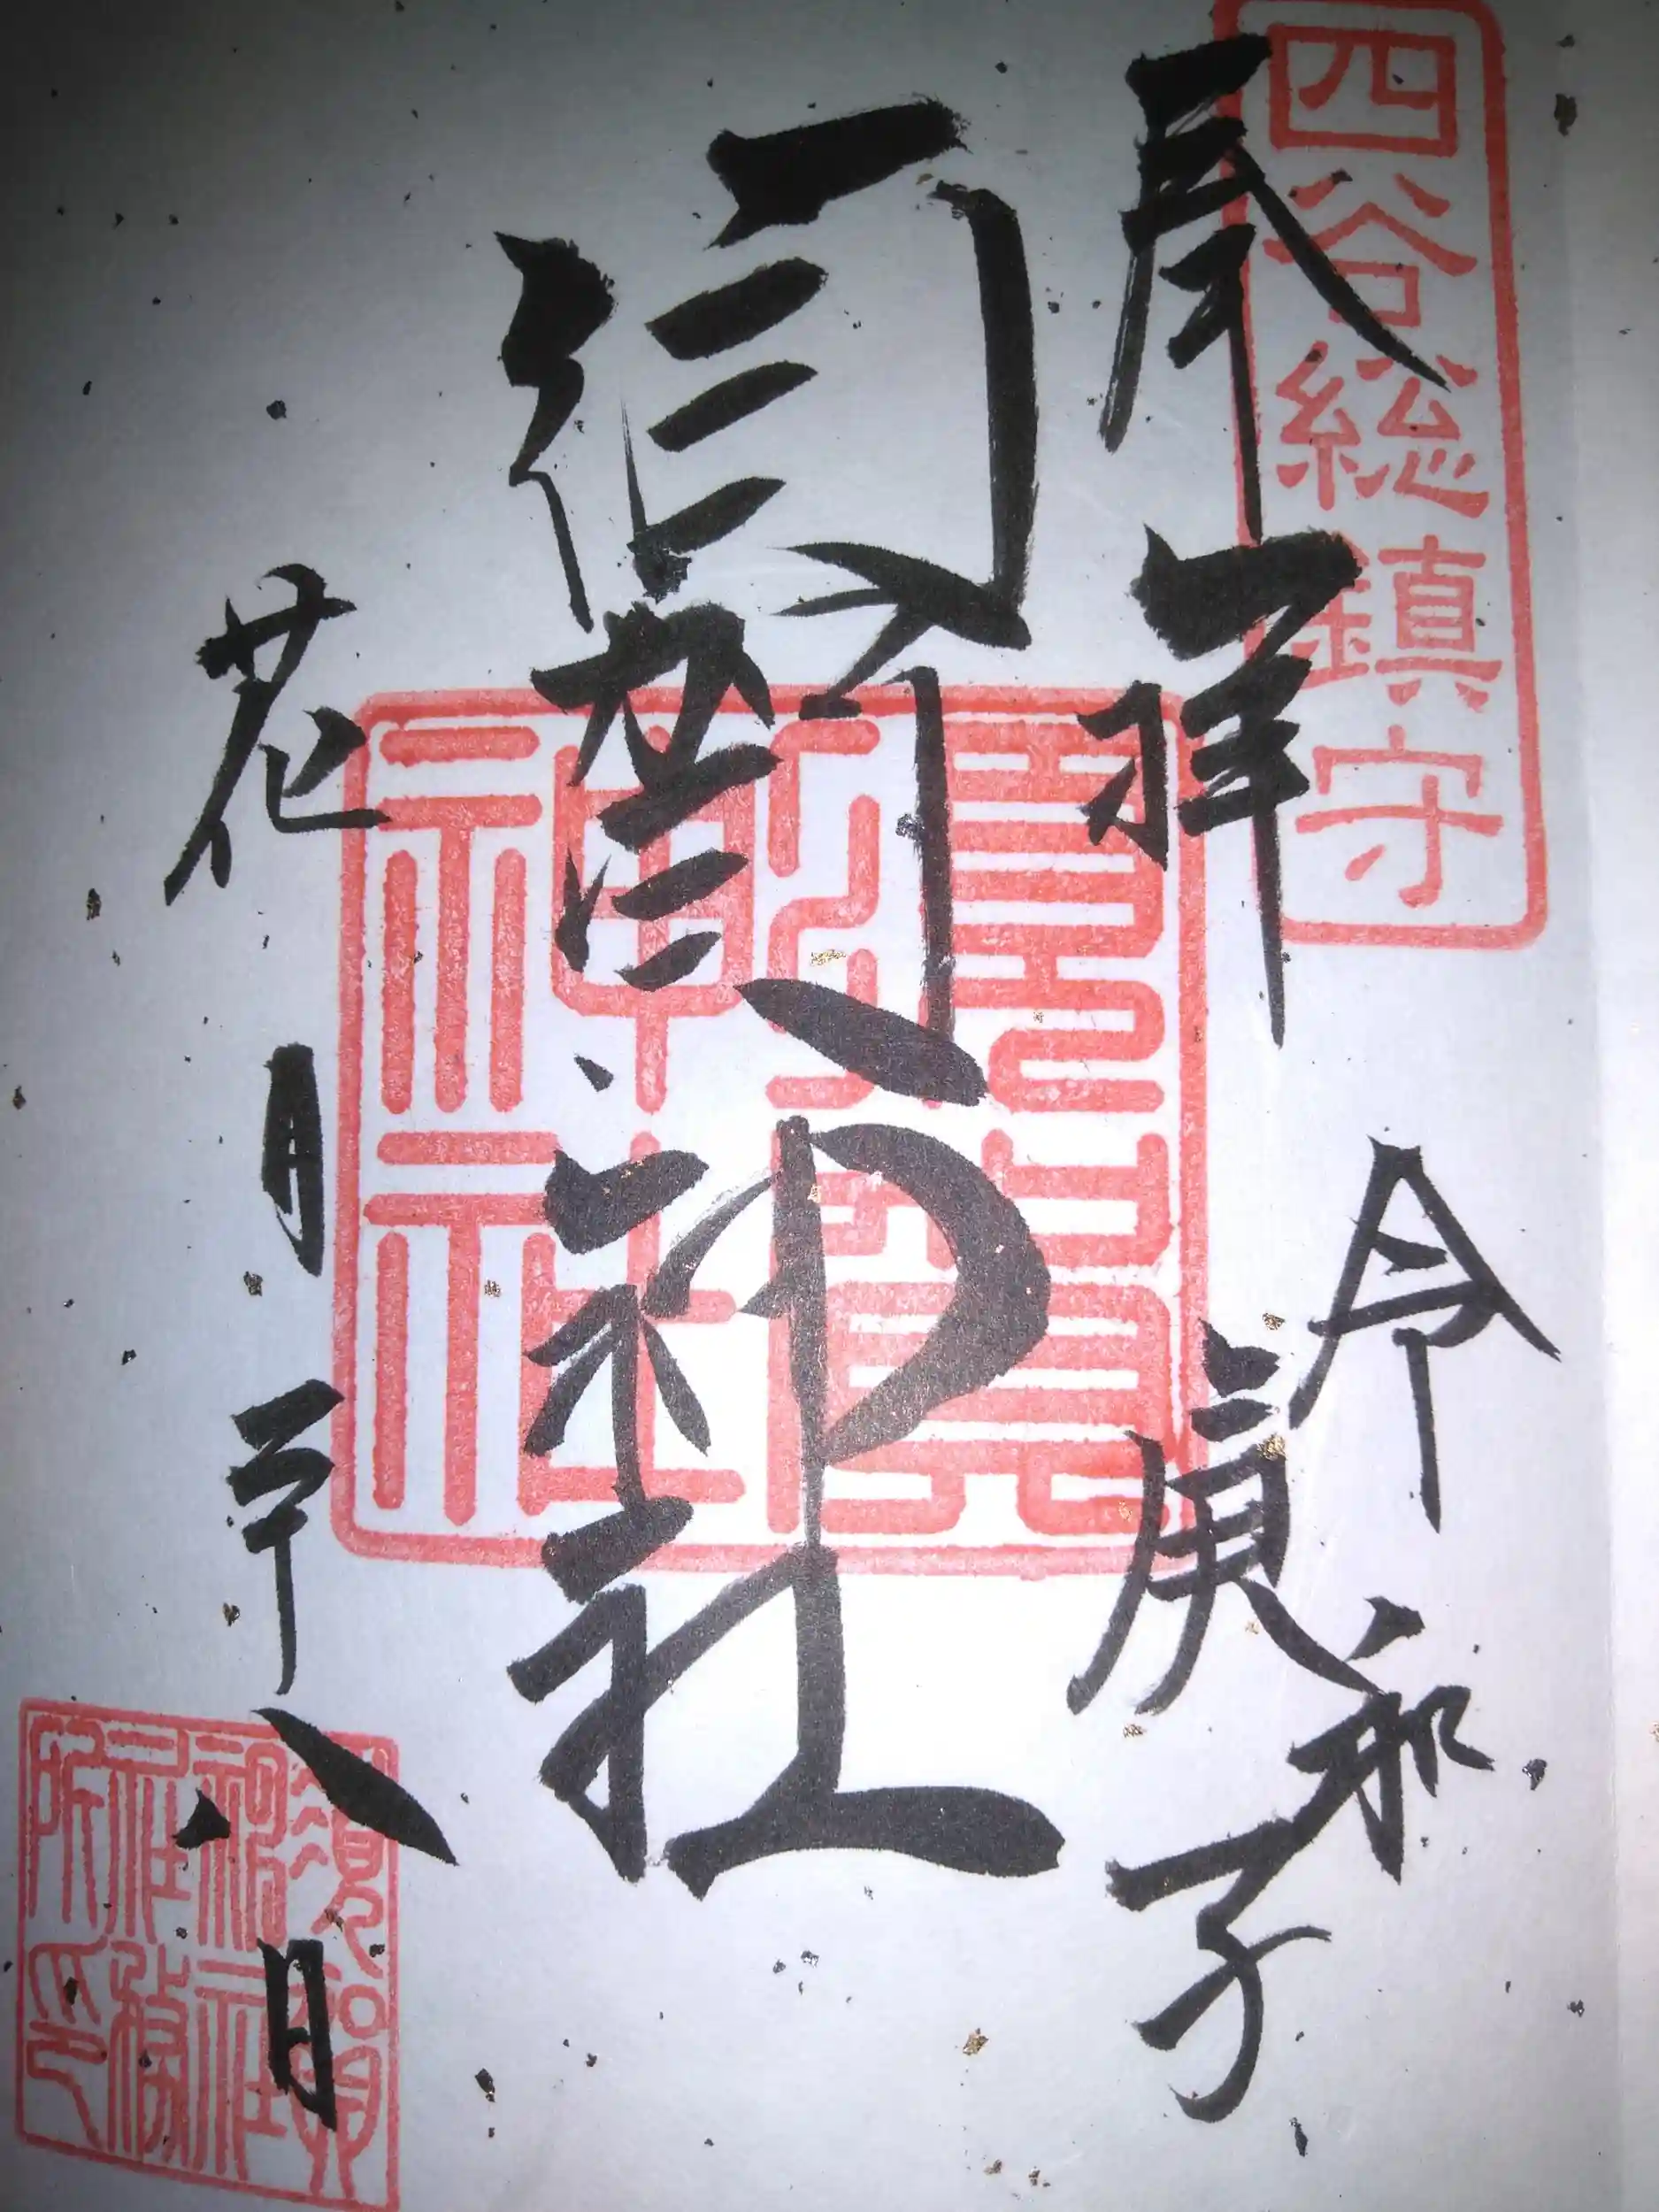 四谷総鎮守
奉拝
令和
庚子
須賀神社
須賀神社
花月二十八日
須賀神社社務所印